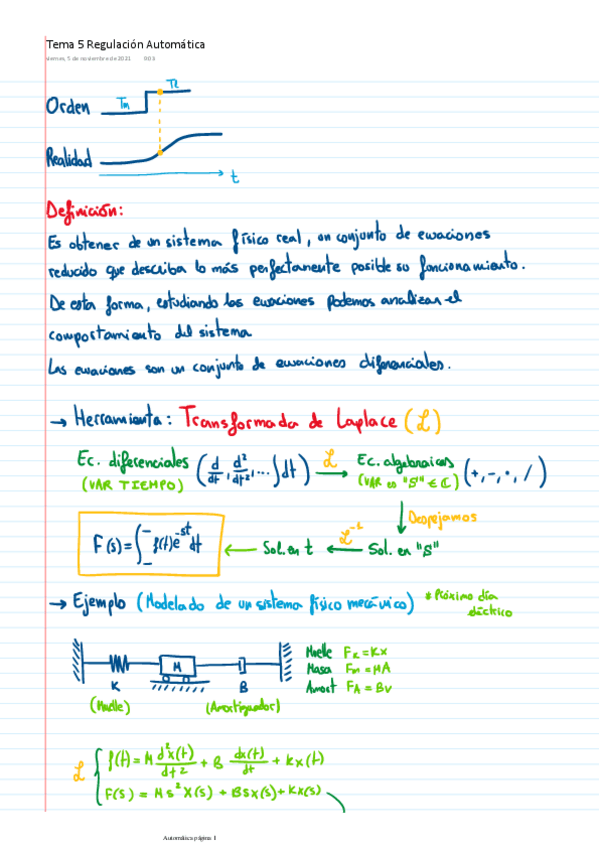 Tema 5 Regulación Automática
viernes, 5 de noviembre de 2021 9:03
T2
Orden Tm
Realidad
t
Definición:
Es obtener de un sistema físico real, un conjunto de ecuaciones
reducido que describa lo más perfectamente posible su funcionamiento.
De esta forma, estudiando las ecuaciones podemos analizar el
comportamiento del sistema
Las ecuaciones son un conjunto de ecuaciones diferenciales.
→ Herramienta: Transformada de Laplace (ℒ)
Ec. diferenciales (d/dt, d²/dt², ... ∫dt) ℒ→ Ec. algebraicas (+, -, ·, /)
(VAR TIEMPO) (VAR es "S" ∈ ℂ)
↓ Despejamos
F(s) = ∫ f(t)e^-st dt ← Sol. en t ←ℒ^-1 Sol. en "S"
→ Ejemplo (Modelado de un sistema físico mecánico) * Próximo día
M
K B
(Muelle) (Amortiguador)
Muelle Fk = Kx
Masa Fm = MA
Amort FA = Bv
ℒ { f(t) = M d²x(t)/dt² + B dx(t)/dt + Kx(t)
F(s) = Ms²X(s) + BsX(s) + KX(s)
Automática página 1